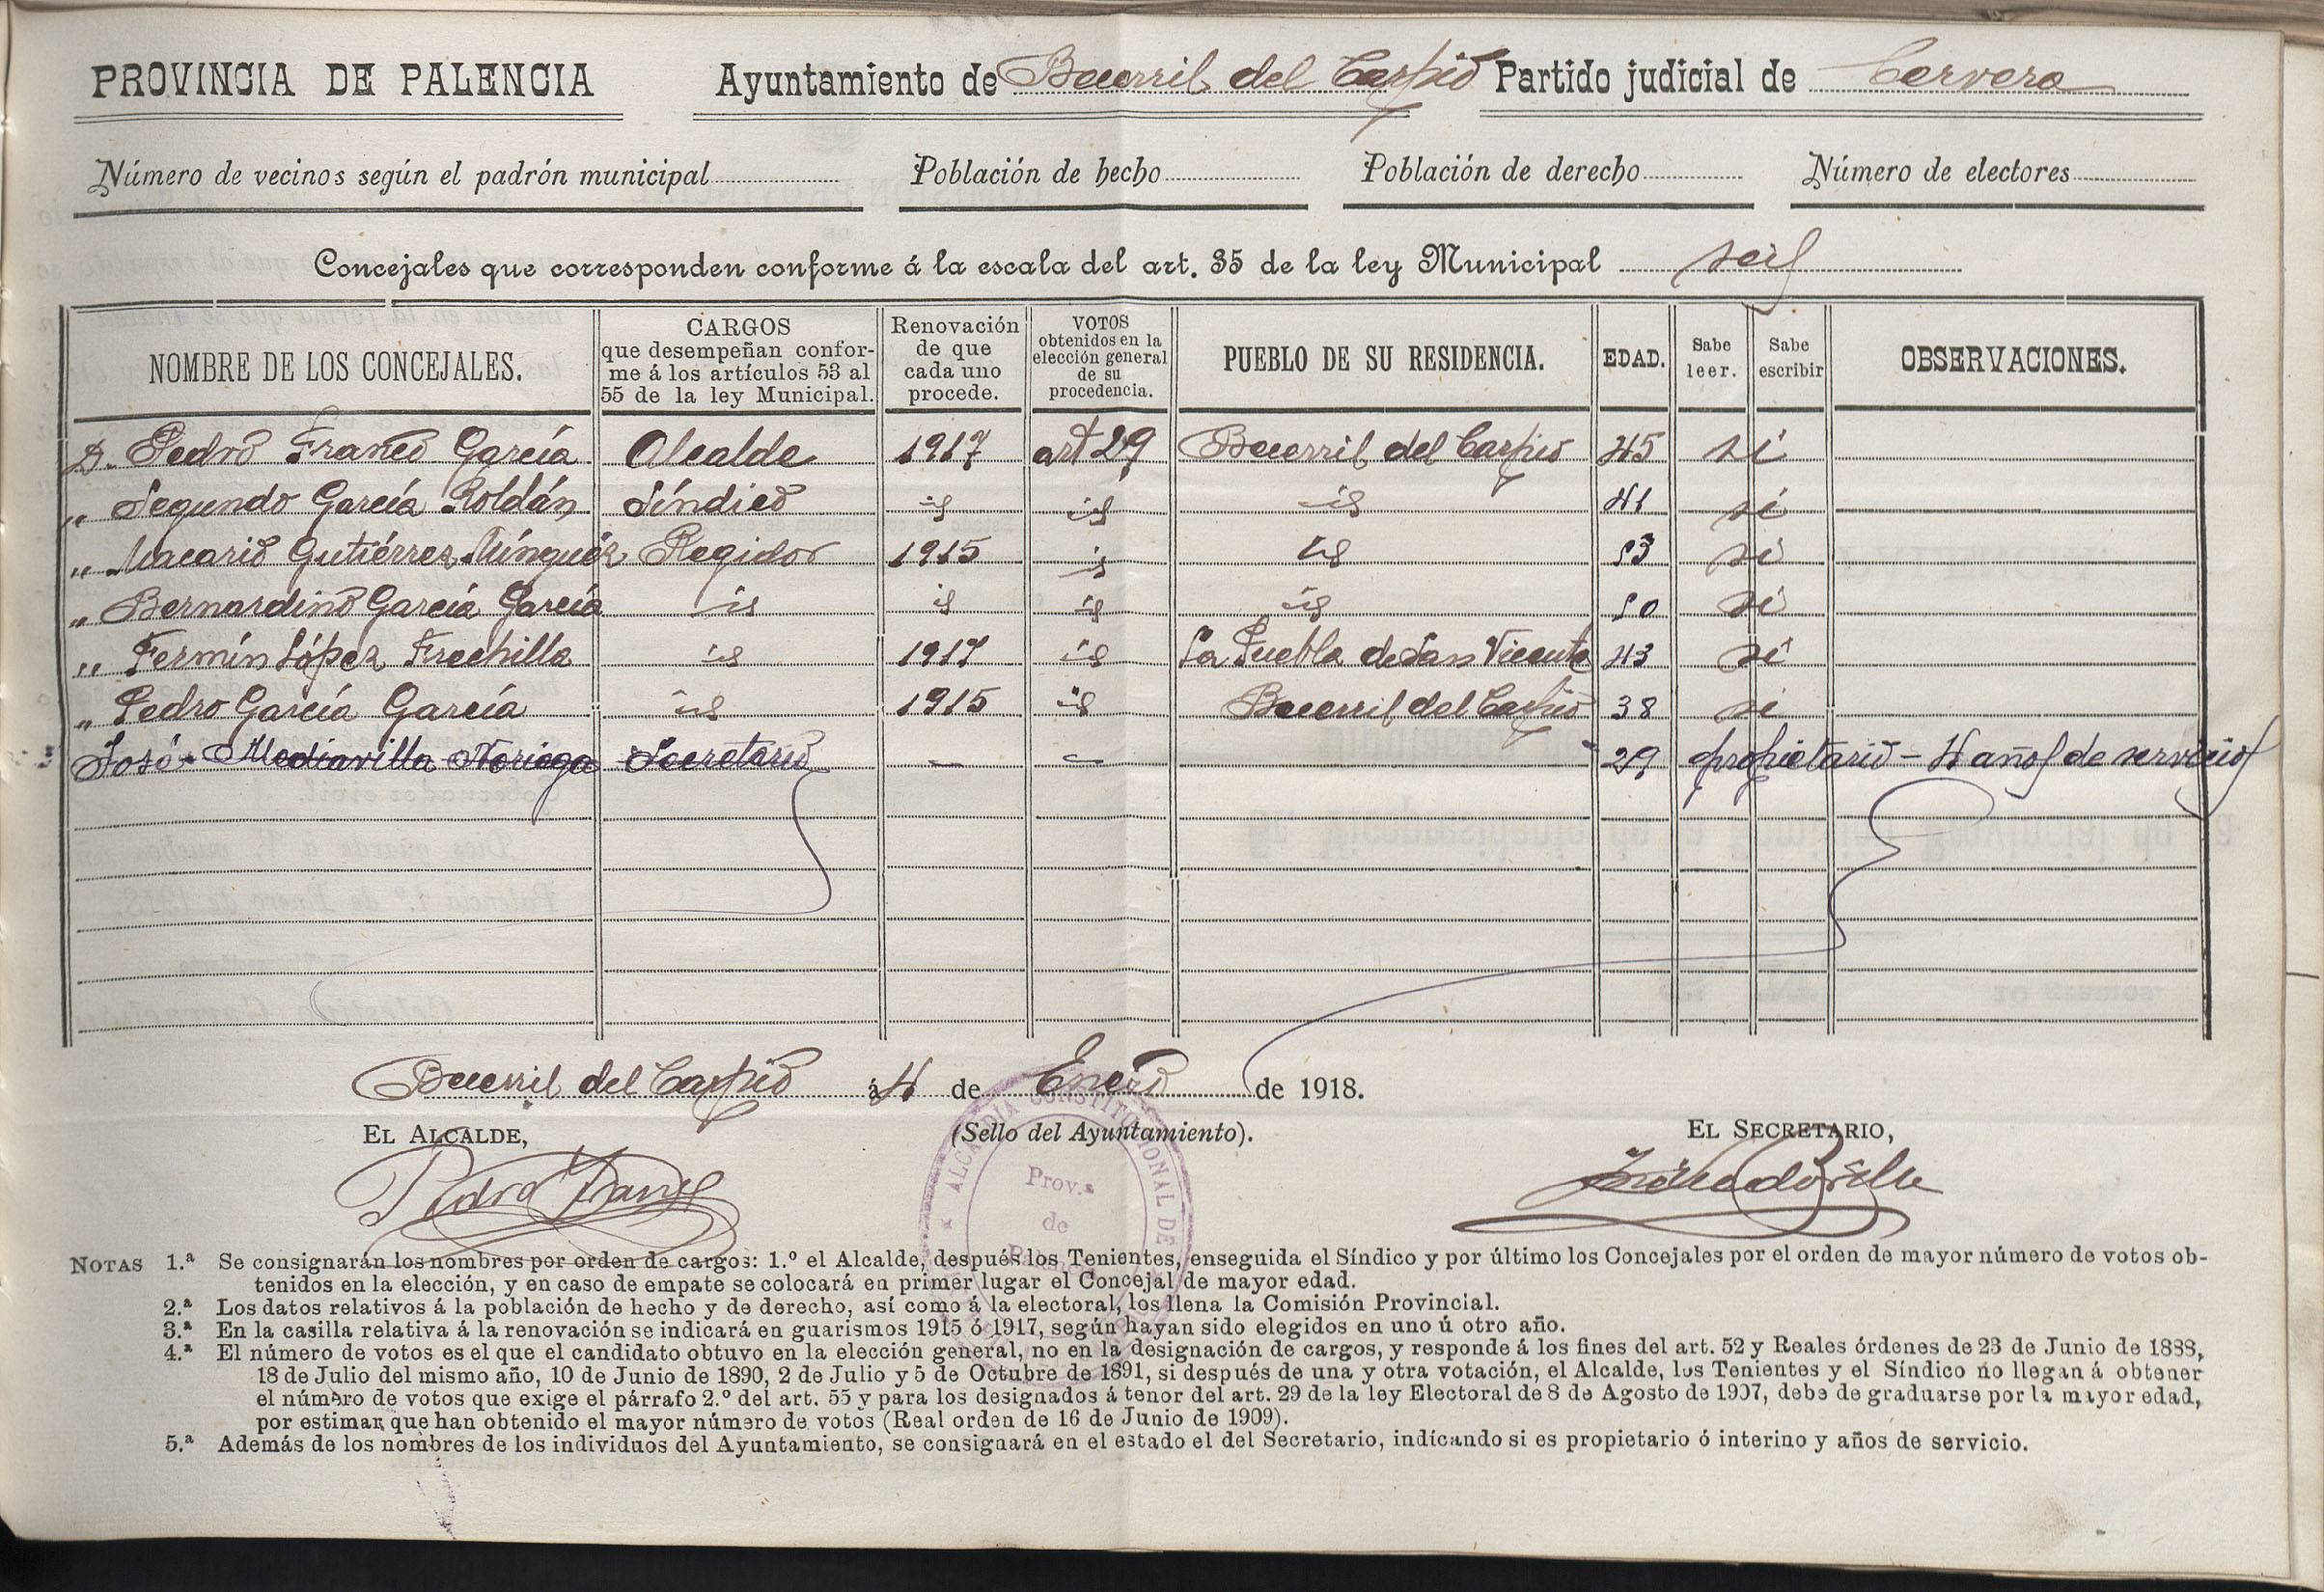 PROVINCIA DE PALENCIA Ayuntamiento de Becerril del Carpio Partido judicial de Cervera
Número de vecinos según el padrón municipal Población de hecho Población de derecho Número de electores
Concejales que corresponden conforme á la escala del art. 35 de la ley Municipal seis
NOMBRE DE LOS CONCEJALES. CARGOS que desempeñan conforme á los artículos 53 al 55 de la ley Municipal. Renovación de que cada uno procede. VOTOS obtenidos en la elección general de su procedencia. PUEBLO DE SU RESIDENCIA. EDAD. Sabe leer. Sabe escribir OBSERVACIONES.
D. Pedro Franco García Alcalde 1917 art 29 Becerril del Carpio 45 sí
„ Segundo García Roldán Síndico id id id 41 sí
„ Macario Gutiérrez Mínguez Regidor 1915 id id 53 sí
„ Bernardino García García id id id id 50 sí
„ Fermín López Frechilla id 1917 id La Puebla de San Vicente 43 sí
„ Pedro García García id 1915 id Becerril del Carpio 38 sí
José Mediavilla Noriega Secretario — — 29 propietario - 4 años de servicios
Becerril del Carpio á 4 de Enero de 1918.
EL ALCALDE, (Sello del Ayuntamiento). EL SECRETARIO,
Pedro Franco
ALCALDIA CONSTITUCIONAL DE
Prov.a
de
NOTAS 1.ª Se consignarán los nombres por orden de cargos: 1.º el Alcalde, después los Tenientes, enseguida el Síndico y por último los Concejales por el orden de mayor número de votos ob-
tenidos en la elección, y en caso de empate se colocará en primer lugar el Concejal de mayor edad.
2.ª Los datos relativos á la población de hecho y de derecho, así como á la electoral, los llena la Comisión Provincial.
3.ª En la casilla relativa á la renovación se indicará en guarismos 1915 ó 1917, según hayan sido elegidos en uno ú otro año.
4.ª El número de votos es el que el candidato obtuvo en la elección general, no en la designación de cargos, y responde á los fines del art. 52 y Reales órdenes de 23 de Junio de 1888,
18 de Julio del mismo año, 10 de Junio de 1890, 2 de Julio y 5 de Octubre de 1891, si después de una y otra votación, el Alcalde, los Tenientes y el Síndico no llegan á obtener
el número de votos que exige el párrafo 2.º del art. 55 y para los designados á tenor del art. 29 de la ley Electoral de 8 de Agosto de 1907, debe de graduarse por la mayor edad,
por estimar que han obtenido el mayor número de votos (Real orden de 16 de Junio de 1909).
5.ª Además de los nombres de los individuos del Ayuntamiento, se consignará en el estado el del Secretario, indicando si es propietario ó interino y años de servicio.